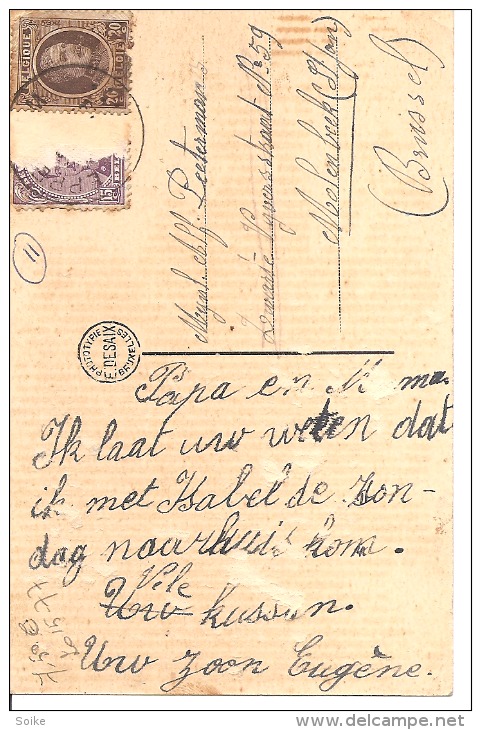 BELGIQUE
20 BELGIË 20
15
11
Mynh. Alf. Peeterman
Hovenstraat No 59
Molenbeek (St Jan)
(Brussel)
PHOTOTYPIE E. DESAIX BRUXELLES
Papa en Mma.
Ik laat uw weten dat
ik met Isabel de zon-
dag naarhuis kom.
Vele
Uw kussen.
Uw zoon Eugène.
Soike
https://www.delcampe.net